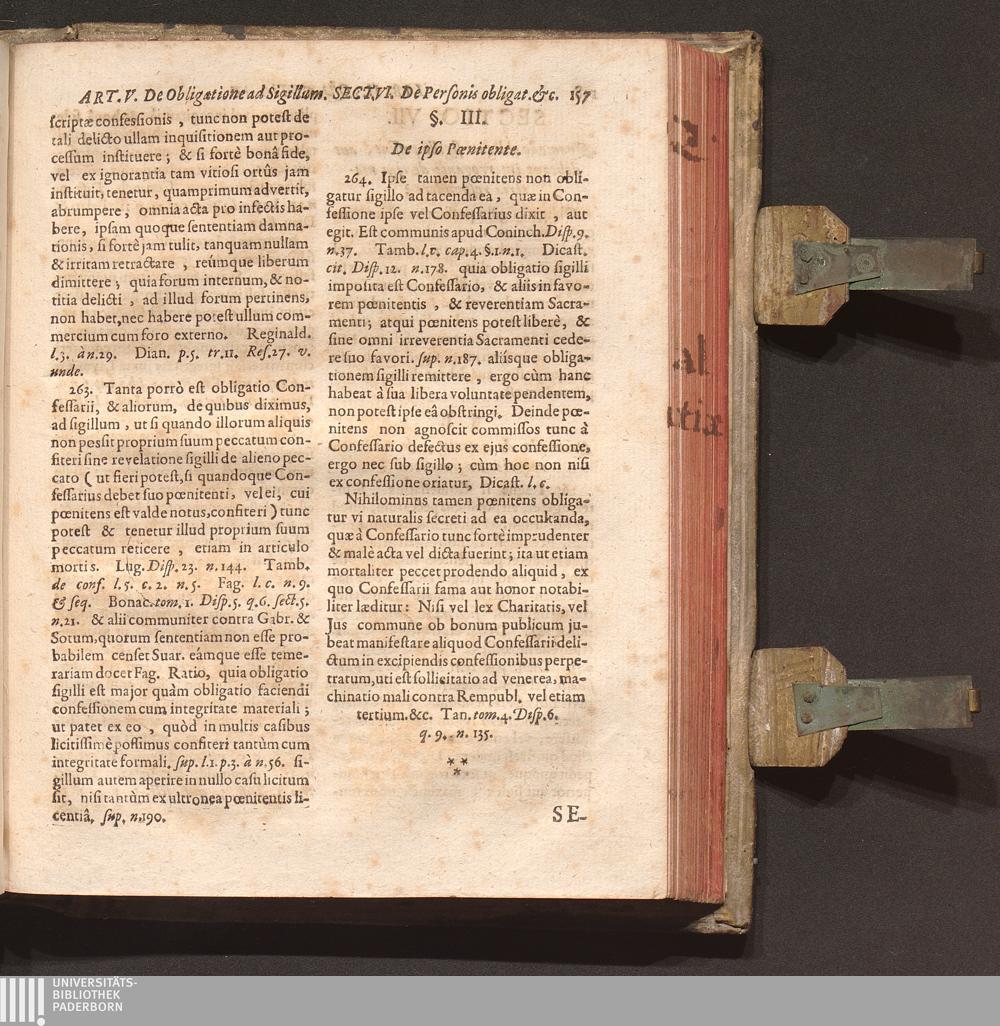 ART. V. De Obligatione ad Sigillum. SECT. VI. De Personis obligat. &c. 157
scriptæ confessionis , tunc non potest de
tali delicto ullam inquisitionem aut pro-
cessum instituere ; & si fortè bonâ fide,
vel ex ignorantia tam vitiosi ortûs jam
instituit, tenetur, quamprimum advertit,
abrumpere , omnia acta pro infectis ha-
bere, ipsam quoque sententiam damna-
tionis, si fortè jam tulit, tanquam nullam
& irritam retractare , reúmque liberum
dimittere ; quia forum internum, & no-
titia delicti , ad illud forum pertinens,
non habet, nec habere potest ullum com-
mercium cum foro externo. Reginald.
l.3. à n.29. Dian. p.5. tr.11. Res.27. v.
unde.
263. Tanta porrò est obligatio Con-
fessarii, & aliorum, de quibus diximus,
ad sigillum , ut si quando illorum aliquis
non possit proprium suum peccatum con-
fiteri sine revelatione sigilli de alieno pec-
cato ( ut fieri potest, si quandoque Con-
fessarius debet suo pœnitenti, vel ei, cui
pœnitens est valde notus, confiteri ) tunc
potest & tenetur illud proprium suum
peccatum reticere , etiam in articulo
mortis. Lug. Disp. 23. n. 144. Tamb.
de conf. l. 5. c. 2. n. 5. Fag. l. c. n. 9.
& seq. Bonac. tom. 1. Disp. 5. q. 6. sect. 5.
n. 21. & alii communiter contra Gabr. &
Sotum, quorum sententiam non esse pro-
babilem censet Suar. eámque esse teme-
rariam docet Fag. Ratio, quia obligatio
sigilli est major quàm obligatio faciendi
confessionem cum integritate materiali ;
ut patet ex eo , quòd in multis casibus
licitissimè possimus confiteri tantùm cum
integritate formali. sup. l.1. p.3. à n.56. si-
gillum autem aperire in nullo casu licitum
sit, nisi tantùm ex ultronea pœnitentis li-
centiâ. sup. n.190.
§. III.
De ipso Pœnitente.
264. Ipse tamen pœnitens non obli-
gatur sigillo ad tacenda ea , quæ in Con-
fessione ipse vel Confessarius dixit , aut
egit. Est communis apud Coninch. Disp. 9.
n.37. Tamb. l. c. cap. 4. §.1. n.1. Dicast.
cit. Disp. 12. n.178. quia obligatio sigilli
imposita est Confessario, & aliis in favo-
rem pœnitentis , & reverentiam Sacra-
menti; atqui pœnitens potest liberè, &
sine omni irreverentia Sacramenti cede-
re suo favori. sup. n.187. aliísque obliga-
tionem sigilli remittere , ergo cùm hanc
habeat à sua libera voluntate pendentem,
non potest ipse eâ obstringi. Deinde pœ-
nitens non agnoscit commissos tunc à
Confessario defectus ex ejus confessione,
ergo nec sub sigillo ; cùm hoc non nisi
ex confessione oriatur, Dicast. l. c.
Nihilominus tamen pœnitens obliga-
tur vi naturalis secreti ad ea occultanda,
quæ à Confessario tunc fortè imprudenter
& malè acta vel dicta fuerint; ita ut etiam
mortaliter peccet prodendo aliquid , ex
quo Confessarii fama aut honor notabi-
liter læditur: Nisi vel lex Charitatis, vel
Jus commune ob bonum publicum ju-
beat manifestare aliquod Confessarii deli-
ctum in excipiendis confessionibus perpe-
tratum, uti est sollicitatio ad venerea, ma-
chinatio mali contra Rempubl. vel etiam
tertium. &c. Tan. tom. 4. Disp. 6.
q. 9. n. 135.
***
SE-
UNIVERSITÄTS-
BIBLIOTHEK
PADERBORN